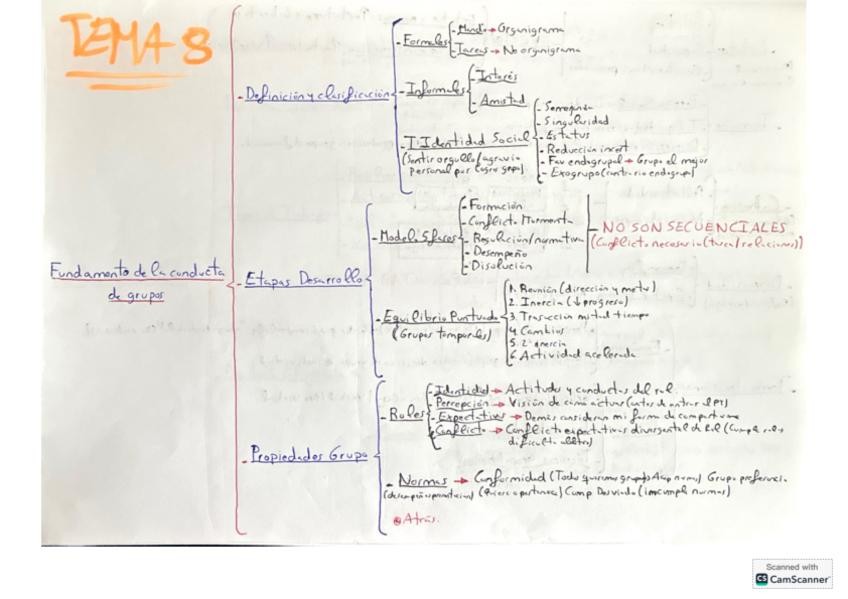 TEMA 8
Fundamento de la conducta
de grupos
- Definición y clasificación
- Formales
- Mando → Organigrama
- Tareas → No organigrama
- Informales
- Interés
- Amistad
- T. Identidad Social
(Sentir orgullo/agravio
personal por logro grup)
- Semejan
- Singularidad
- Estatus
- Reducción incert
- Fav endogrupal → Grupo el mejor
- Exogrupo (contrario endogrupo)
- Etapas Desarrollo
- Model. 5 fases
- Formación
- Conflicto
- Regulación/normativa
- Desempeño
- Disolución
NO SON SECUENCIALES
(Conflicto necesario (tarea/relaciones))
- Equilibrio Puntuado
(Grupos temporales)
1. Reunión (dirección y metas)
2. Inercia (↓ progreso)
3. Transición mitad tiempo
4. Cambios
5. 2ª inercia
6. Actividad acelerada
- Propiedades Grupo
- Roles
- Identidad → Actitudes y conductas del rol.
- Percepción → Visión de como actuar (antes de entrar al PT)
- Expectativas → Demás consideran mi forma de comportarme
- Conflicto → Conflicto expectativas divergentes del rol (Cumplir rol
- Normas → Conformidad (Todo grupo) Grupo
Comp Desviado (incumple normas)
Atrás.
Scanned with
CS CamScanner